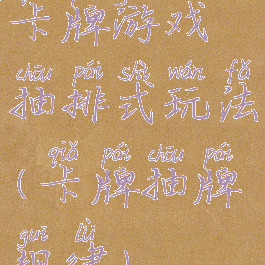 卡牌游戏
chōu pái shì wán fǎ
抽排式玩法
qiǎ pái chōu pái
(卡牌抽牌
guī lǜ
规律)